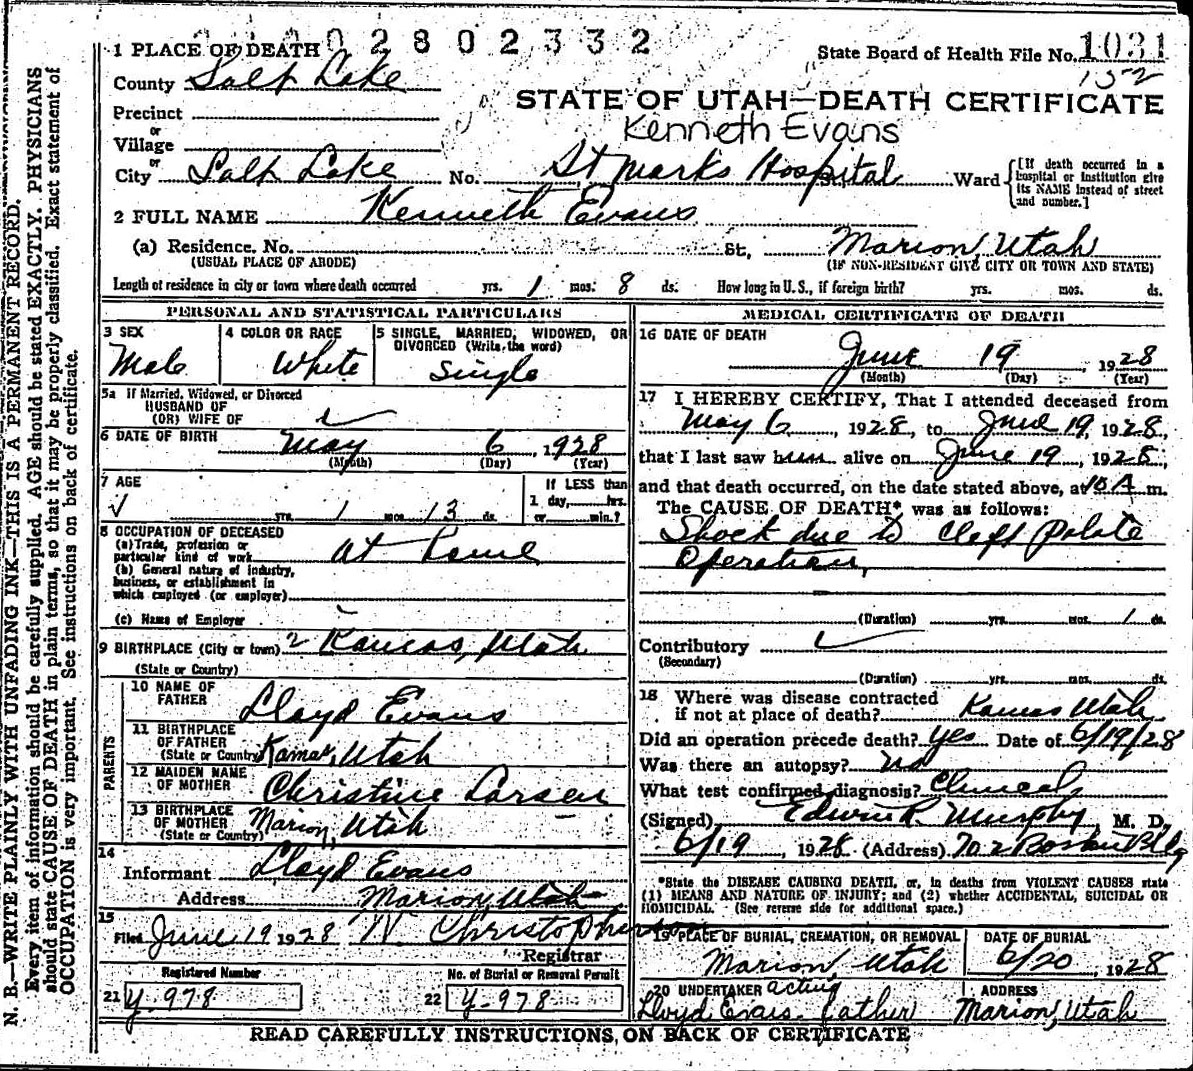 1 PLACE OF DEATH 02802332
State Board of Health File No. 1031
152
County Salt Lake
STATE OF UTAH—DEATH CERTIFICATE
Precinct
Kenneth Evans
or
Village
or
City Salt Lake No. St Marks Hospital St. Ward
[If death occurred in a
hospital or institution give
its NAME instead of street
and number.]
2 FULL NAME Kenneth Evans
(a) Residence. No. St., Marion, Utah
(USUAL PLACE OF ABODE) (IF NON-RESIDENT GIVE CITY OR TOWN AND STATE)
Length of residence in city or town where death occurred yrs. 1 mos. 8 ds. How long in U. S., if foreign birth? yrs. mos. ds.
PERSONAL AND STATISTICAL PARTICULARS
3 SEX
Male
4 COLOR OR RACE
White
5 SINGLE, MARRIED, WIDOWED, OR
DIVORCED (Write the word)
Single
5a If Married, Widowed, or Divorced
HUSBAND OF
(OR) WIFE OF
6 DATE OF BIRTH May 6, 1928
(Month) (Day) (Year)
7 AGE
yrs. 1 mos. 13 ds.
If LESS than
1 day, hrs.
or min.?
8 OCCUPATION OF DECEASED
(a) Trade, profession or
particular kind of work at home
(b) General nature of industry,
business, or establishment in
which employed (or employer)
(c) Name of Employer
9 BIRTHPLACE (City or town) 2 Kamas, Utah
(State or Country)
PARENTS
10 NAME OF
FATHER Lloyd Evans
11 BIRTHPLACE
OF FATHER
(State or Country) Kamas, Utah
12 MAIDEN NAME
OF MOTHER Christine Larsen
13 BIRTHPLACE
OF MOTHER
(State or Country) Marion, Utah
14
Informant Lloyd Evans
Address Marion, Utah
15
Filed June 19 1928 N Christopherson
Registrar
Registered Number
21 Y-978
No. of Burial or Removal Permit
22 Y-978
MEDICAL CERTIFICATE OF DEATH
16 DATE OF DEATH
June 19 1928
(Month) (Day) (Year)
17 I HEREBY CERTIFY, That I attended deceased from
May 6, 1928, to June 19, 1928,
that I last saw him alive on June 19, 1928,
and that death occurred, on the date stated above, at 10 A m.
The CAUSE OF DEATH* was as follows:
Shock due to Cleft Palate
Operation,
(Duration) yrs. mos. 1 ds.
Contributory
(Secondary)
(Duration) yrs. mos. ds.
18 Where was disease contracted
if not at place of death? Kamas Utah
Did an operation precede death? yes Date of 6/19/28
Was there an autopsy? no
What test confirmed diagnosis? Clinical
(Signed) Edwin R. Murphy, M. D.
6/19, 1928 (Address) 702 Boston Bldg
*State the DISEASE CAUSING DEATH, or, in deaths from VIOLENT CAUSES state
(1) MEANS AND NATURE OF INJURY; and (2) whether ACCIDENTAL, SUICIDAL OR
HOMICIDAL. (See reverse side for additional space.)
19 PLACE OF BURIAL, CREMATION, OR REMOVAL
Marion, Utah
DATE OF BURIAL
6/20, 1928
20 UNDERTAKER acting
Lloyd Evans father
ADDRESS
Marion, Utah
READ CAREFULLY INSTRUCTIONS ON BACK OF CERTIFICATE
N. B.—WRITE PLAINLY WITH UNFADING INK—THIS IS A PERMANENT RECORD.
Every item of information should be carefully supplied. AGE should be stated EXACTLY. PHYSICIANS
should state CAUSE OF DEATH in plain terms, so that it may be properly classified. Exact statement of
OCCUPATION is very important. See instructions on back of certificate.